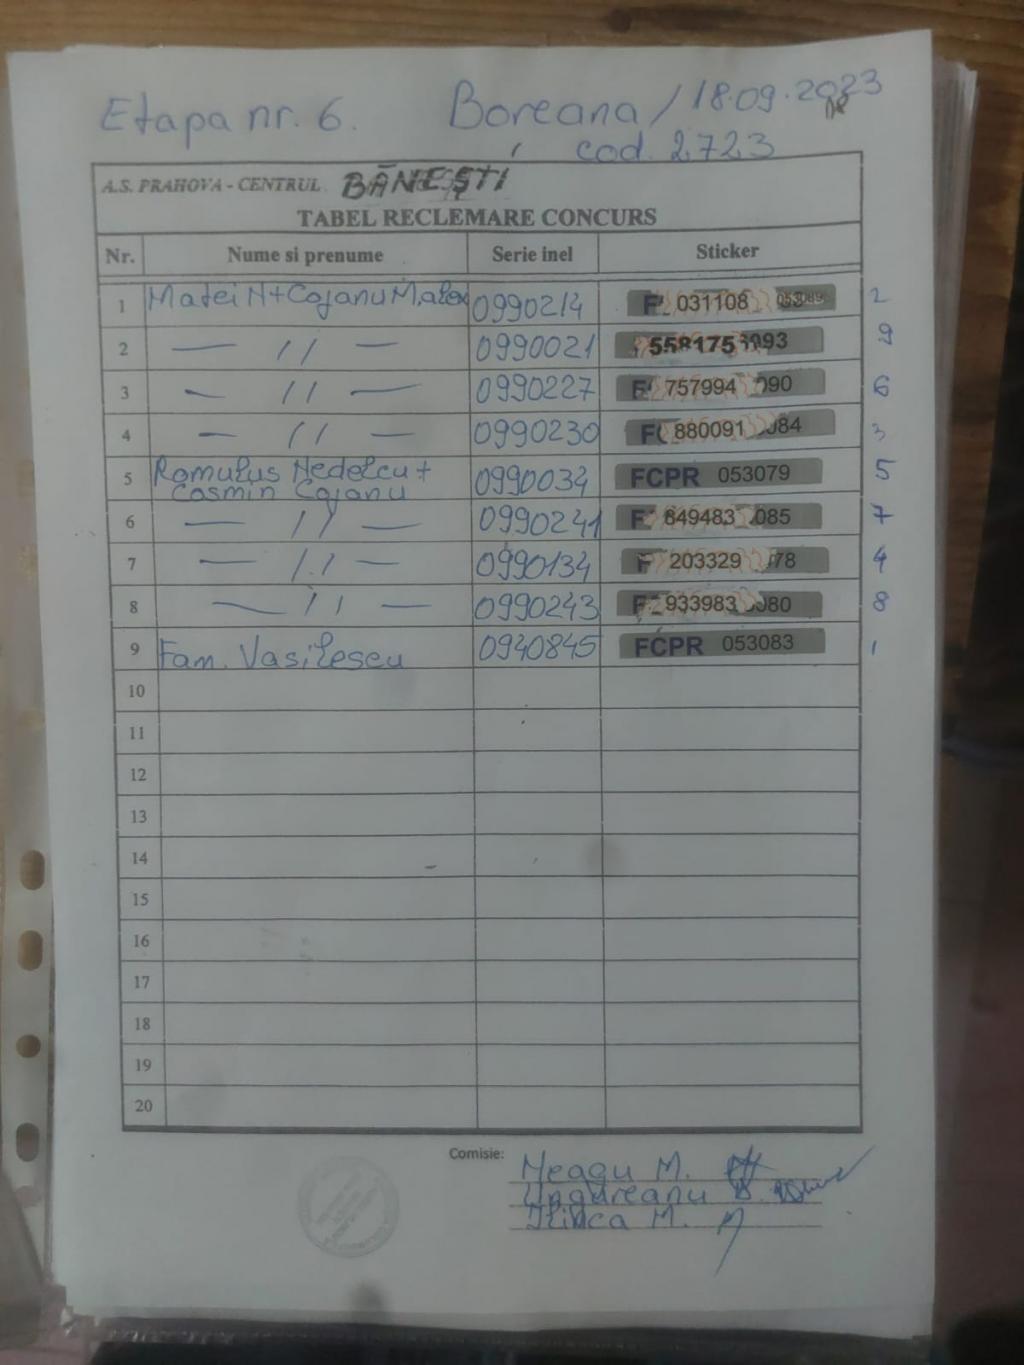 Etapa nr. 6. Boreana / 18.09.2023
cod. 2723
A.S. PRAHOVA - CENTRUL BĂNEȘTI
TABEL RECLEMARE CONCURS
Nr. Nume si prenume Serie inel Sticker
1 Matei N + Cojanu M. 0990214 F 031108 053089 2
2 — // — 0990021 558175 093 9
3 — // — 0990227 F 757994 090 6
4 — // — 0990230 F 880091 084 3
5 Romulus Nedelcu + 0990034 FCPR 053079 5
Cosmin Cojanu
6 — // — 0990241 F 649483 085 7
7 — // — 0990134 F 203329 078 4
8 — // — 0990243 F 933983 080 8
9 Fam. Vasilescu 0940845 FCPR 053083 1
10
11
12
13
14
15
16
17
18
19
20
Comisie: Neagu M.
Ungureanu
Ilinca M.